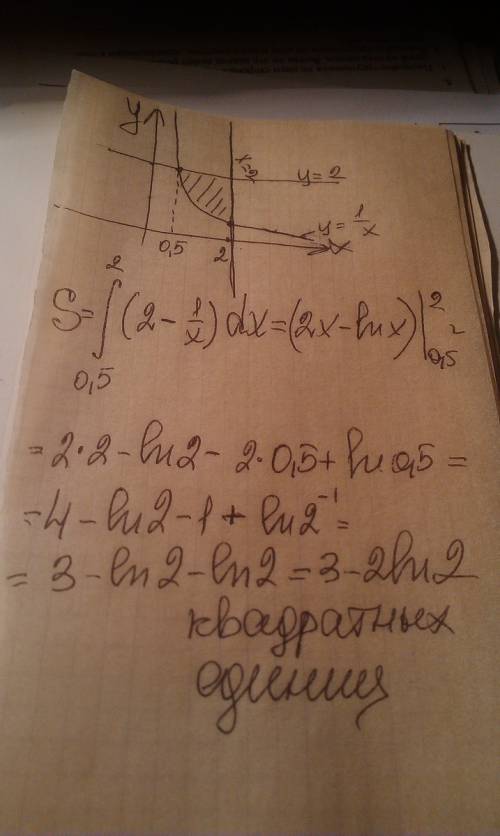 y
x=2
y = 2
y = 1/x
0,5
2
x
S = ∫_{0,5}^{2} (2 - 1/x) dx = (2x - ln x) |_{0,5}^{2} =
= 2·2 - ln 2 - 2·0,5 + ln 0,5 =
= 4 - ln 2 - 1 + ln 2^{-1} =
= 3 - ln 2 - ln 2 = 3 - 2 ln 2
квадратных
единиц